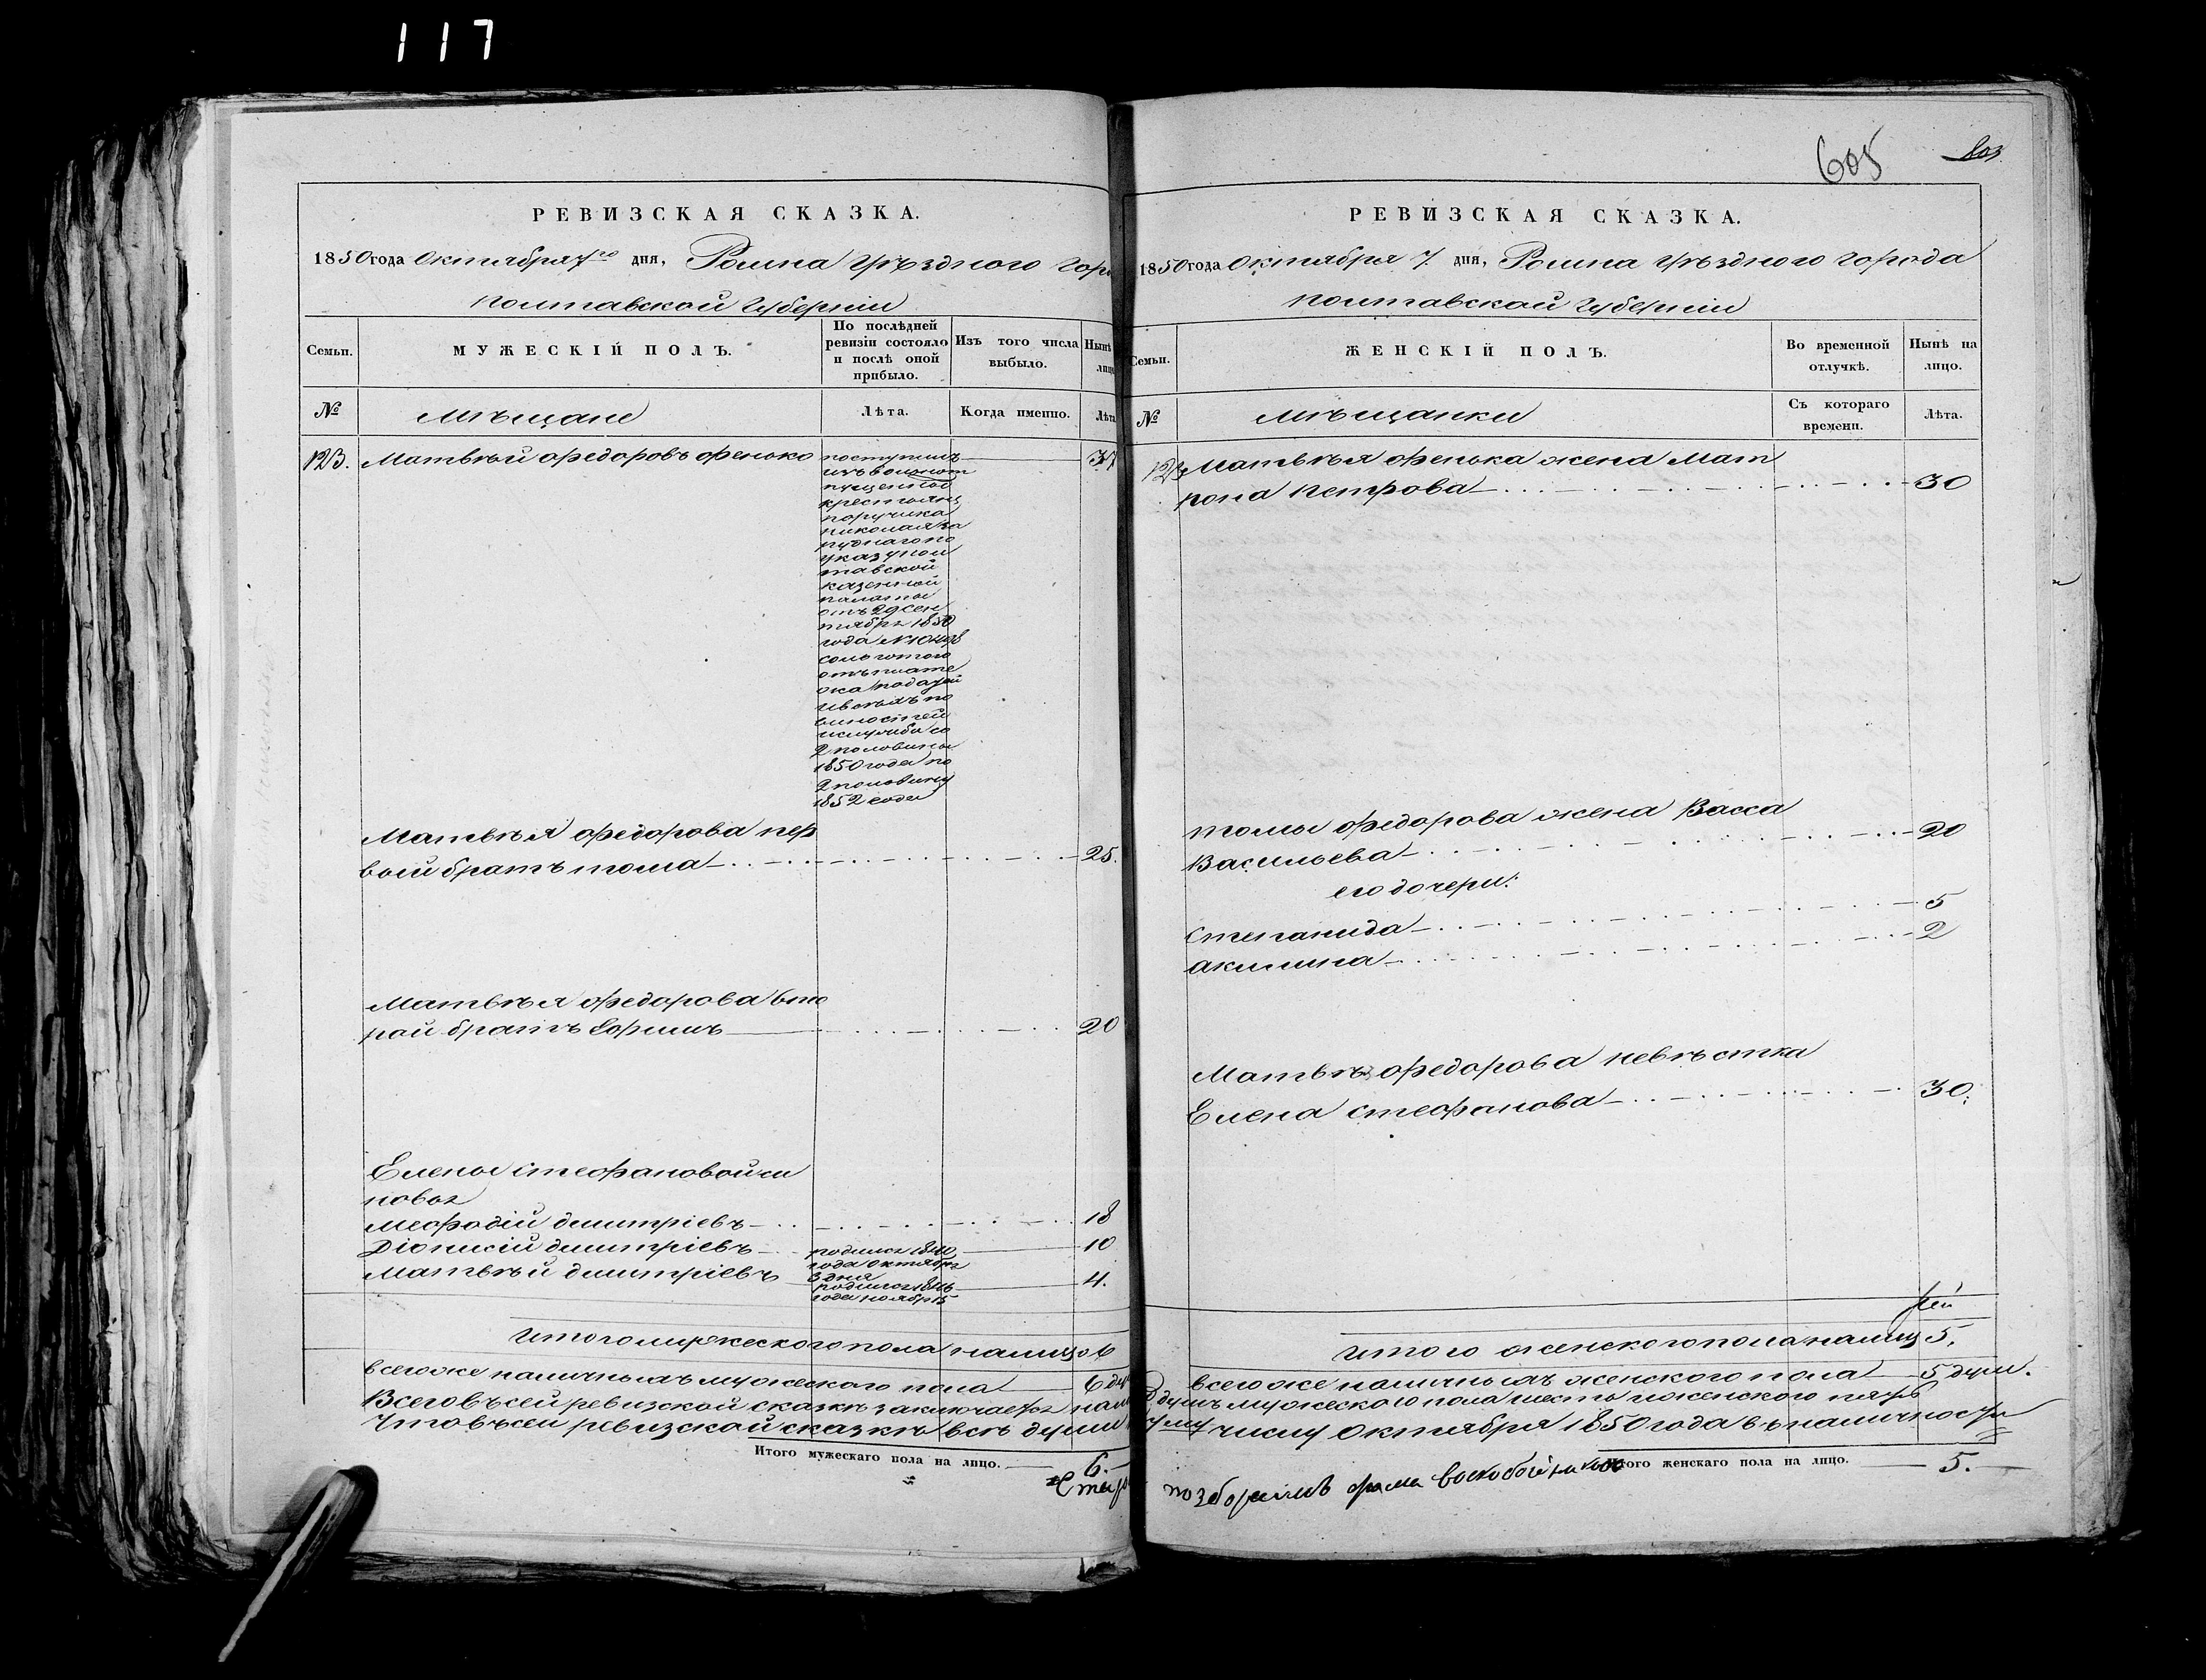 117
РЕВИЗСКАЯ СКАЗКА.
1850 года Октября 7го дня, Ромна Уѣзднаго Горо
Полтавской Губерніи
Семьи.
МУЖЕСКІЙ ПОЛЪ.
По послѣдней ревизіи состояло и послѣ оной прибыло.
Изъ того числа выбыло.
Нынѣ лицо
№
Мѣщане
Лѣта.
Когда именно.
Лѣта
123. Матвѣй Федоровъ Фенько 37
поступилъ
изъ вольноот
пущенныхъ
крестьянъ
поручика
Николая За
руднаго по
указу Пол
тавской
казенной
палаты
отъ 29 Сен
тября 1850
года №
сольготою
отъ плате
жа податей
и всѣхъ по
винностей
и службы со
2 половины
1850 года по
2 половину
1852 года
Матвѣя Федорова пер
вой братъ Тома 25.
Матвѣя Федорова вто
рой братъ Ефимъ 20
Елены Стефановой сы
новья
Мефодій Дмитріевъ 18
Діонисій Дмитріевъ родился 1840 10
года Октября
3 дня
Матвѣй Дмитріевъ родился 1846 4.
года ноября 15
Итого мужескаго пола налицо 6
всегоже наличныхъ мужескаго пола 6 ду
Всего въ сей ревизской сказкѣ заключается нали
Что въ сей ревизской сказкѣ всѣ души
Итого мужескаго пола на лицо. 6.
605
803
РЕВИЗСКАЯ СКАЗКА.
1850 года Октября 7. дня, Ромна Уѣзднаго Города
Полтавской Губерніи
Семьи.
ЖЕНСКІЙ ПОЛЪ.
Во временной отлучкѣ.
Нынѣ на лицо.
№
Мѣщанки
Съ котораго времени.
Лѣта.
123 Матвѣя Фенька жена Мат
рона Петрова 30
Томы Федорова жена Васса
Васильева 20
его дочери:
Степанида 5
Акилина 2
Матвѣя Федорова невѣстка
Елена Стефанова 30.
Итого женскаго пола налицо 5.
всегоже наличныхъ женскаго пола 5 душ.
душъ мужескаго пола шесть и женскаго пять
числу Октября 1850 года въ наличности
Итого женскаго пола на лицо. 5.